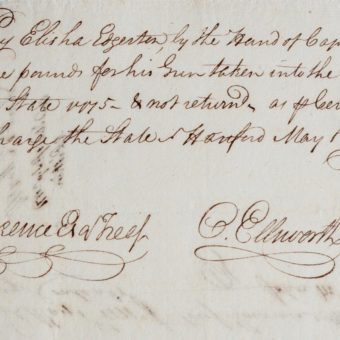 y Elisha Edgerton, by the Hand of Cap
e pounds for his Gun taken into the
State 1775 - & not return'd - as p Cer
charge the State - Harford May 1
rence Esqr Treasr
O. Ellsworth